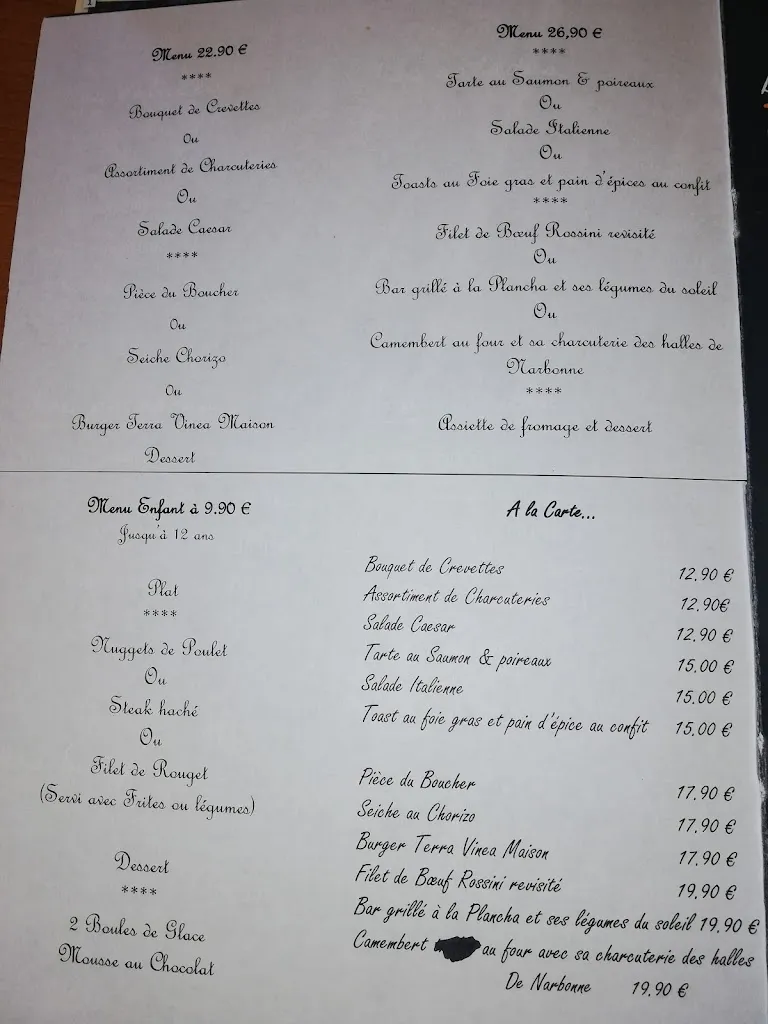 Menu 22.90 €
****
Bouquet de Crevettes
Ou
Assortiment de Charcuteries
Ou
Salade Caesar
****
Pièce du Boucher
Ou
Seiche Chorizo
Ou
Burger Terra Vinea Maison
Dessert
Menu 26,90 €
****
Tarte au Saumon & poireaux
Ou
Salade Italienne
Ou
Toasts au Foie gras et pain d'épices au confit
****
Filet de Bœuf Rossini revisité
Ou
Bar grillé à la Plancha et ses légumes du soleil
Ou
Camembert au four et sa charcuterie des halles de
Narbonne
****
Assiette de fromage et dessert
Menu Enfant à 9.90 €
Jusqu'à 12 ans
Plat
****
Nuggets de Poulet
Ou
Steak haché
Ou
Filet de Rouget
(Servi avec Frites ou légumes)
Dessert
****
2 Boules de Glace
Mousse au Chocolat
A la Carte...
Bouquet de Crevettes 12.90 €
Assortiment de Charcuteries 12.90€
Salade Caesar 12.90 €
Tarte au Saumon & poireaux 15.00 €
Salade Italienne 15.00 €
Toast au foie gras et pain d'épice au confit 15.00 €
Pièce du Boucher 17.90 €
Seiche au Chorizo 17.90 €
Burger Terra Vinea Maison 17.90 €
Filet de Bœuf Rossini revisité 19.90 €
Bar grillé à la Plancha et ses légumes du soleil 19.90 €
Camembert au four avec sa charcuterie des halles
De Narbonne 19.90 €